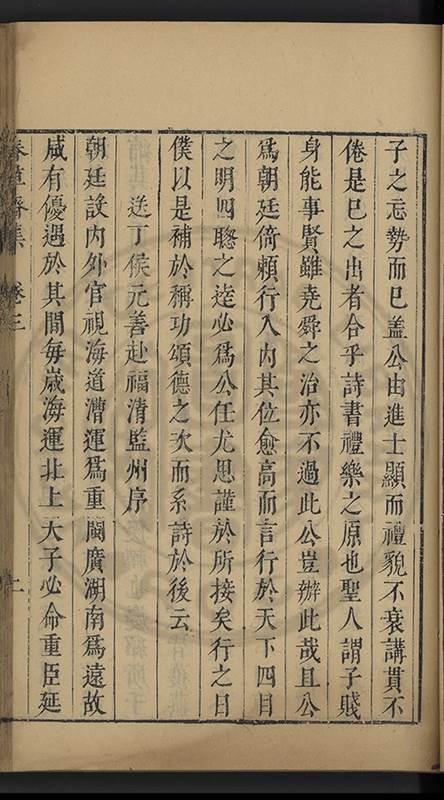 子之忘勢而已盖公由進士顯而禮貌不衰講貫不
倦是巳之出者合乎詩書禮樂之原也聖人謂子賤
身能事賢雖堯舜之治亦不過此公豈辦此哉且公
爲朝廷倚頼行入内其位愈高而言行於天下四目
之明四聦之逹必爲公任尤思謹於所接矣行之日
僕以是補於稱功頌德之次而系詩於後云
送丁侯元善赴福清監州序
朝廷設内外官視海道漕運爲重閩廣湖南爲遠故
咸有優遇於其間每歲海運北上天子必命重臣延
春草齋集 卷三